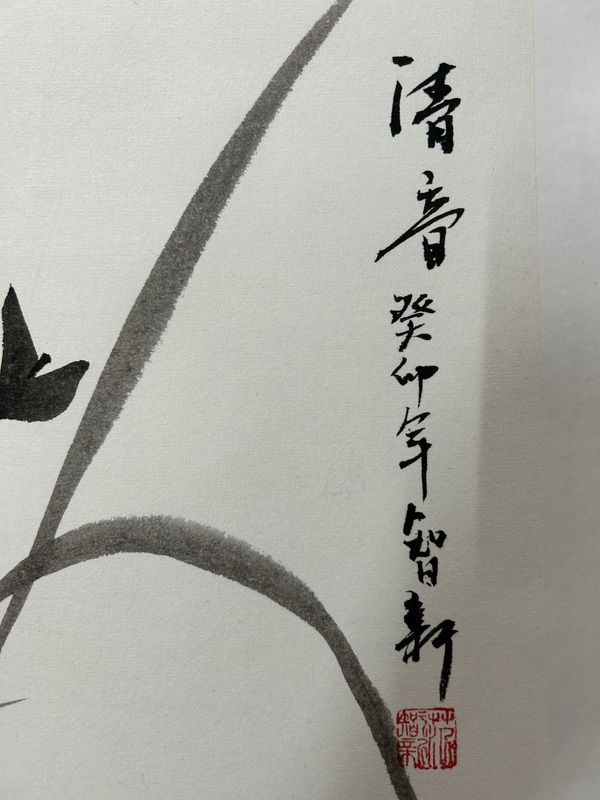 清音 癸卯年 智新